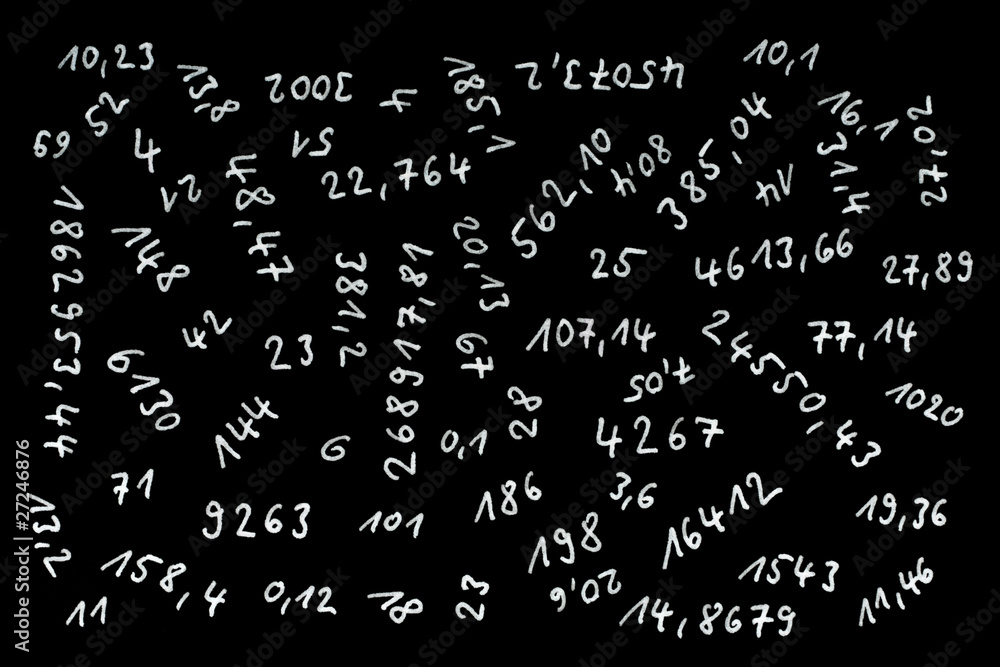 10,23
13,8
3002
4
185,1
45073,2
10,1
52
69
4
51
22,764
562,10
4,08
385,04
16,1
27,02
4,13
14
21
48,47
1862953,44
148
382,2
2689917,81
20,13
25
4613,66
27,89
42
23
67
107,14
24550,43
77,14
6130
144
6
0,1
28
7,05
4267
1020
71
9263
101
186
3,6
198
16412
19,36
13,2
158,4
11
0,12
18
23
20,6
14,8679
1543
11,46
Adobe Stock | #27246876